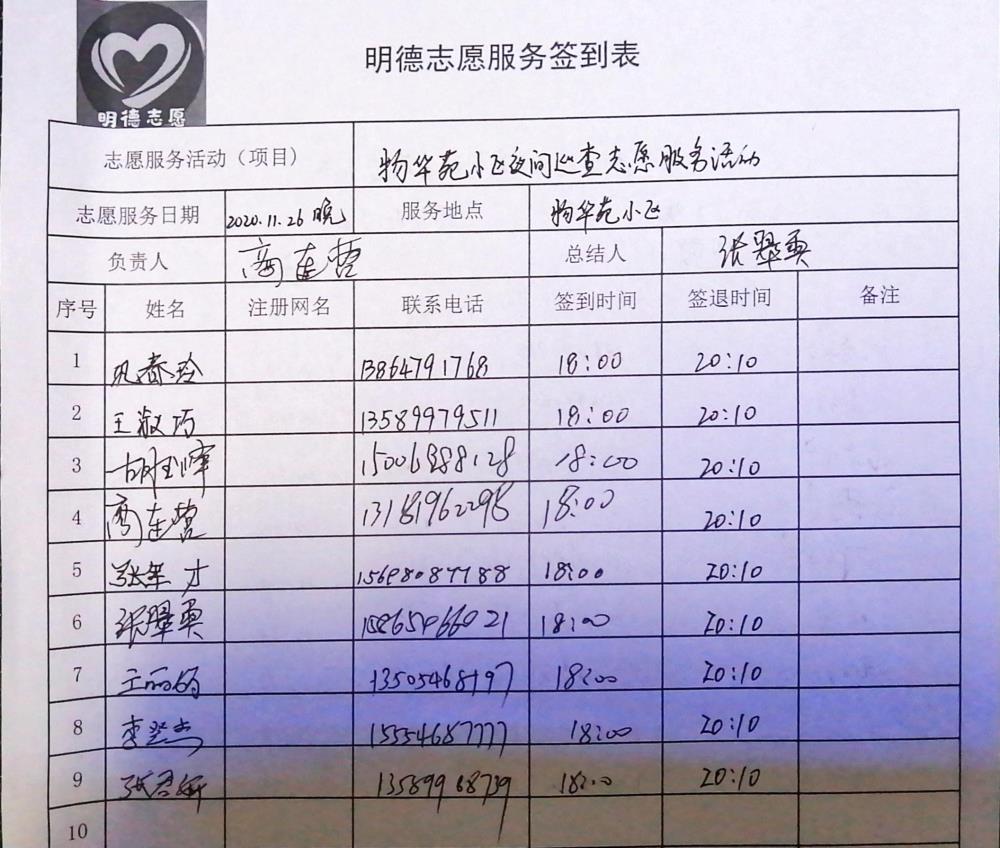 明德志愿服务签到表
明德志愿
志愿服务活动（项目） 物华苑小区夜间巡查志愿服务活动
志愿服务日期 2020.11.26晚 服务地点 物华苑小区
负责人 商连营 总结人 张翠勇
序号 姓名 注册网名 联系电话 签到时间 签退时间 备注
1 巩春玲 13864791768 18:00 20:10
2 王淑巧 13589979511 18:00 20:10
3 胡玉峰 18:00 20:10
4 商连营 13181962298 18:00 20:10
5 才 18:00 20:10
6 张翠勇 18:00 20:10
7 王丽 13505468197 18:00 20:10
8 李 15554687777 18:00 20:10
9 张 18:00 20:10
10